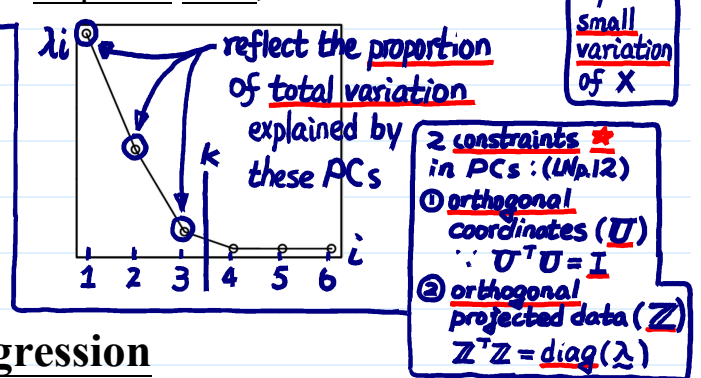 λi
reflect the proportion
of total variation
explained by
these PCs
k
i
1 2 3 4 5 6
small
variation
of X
2 constraints ★
in PCs : (LNp.12)
① orthogonal
coordinates (U)
∵ UᵀU = I
② orthogonal
projected data (Z)
ZᵀZ = diag(λ)
gression